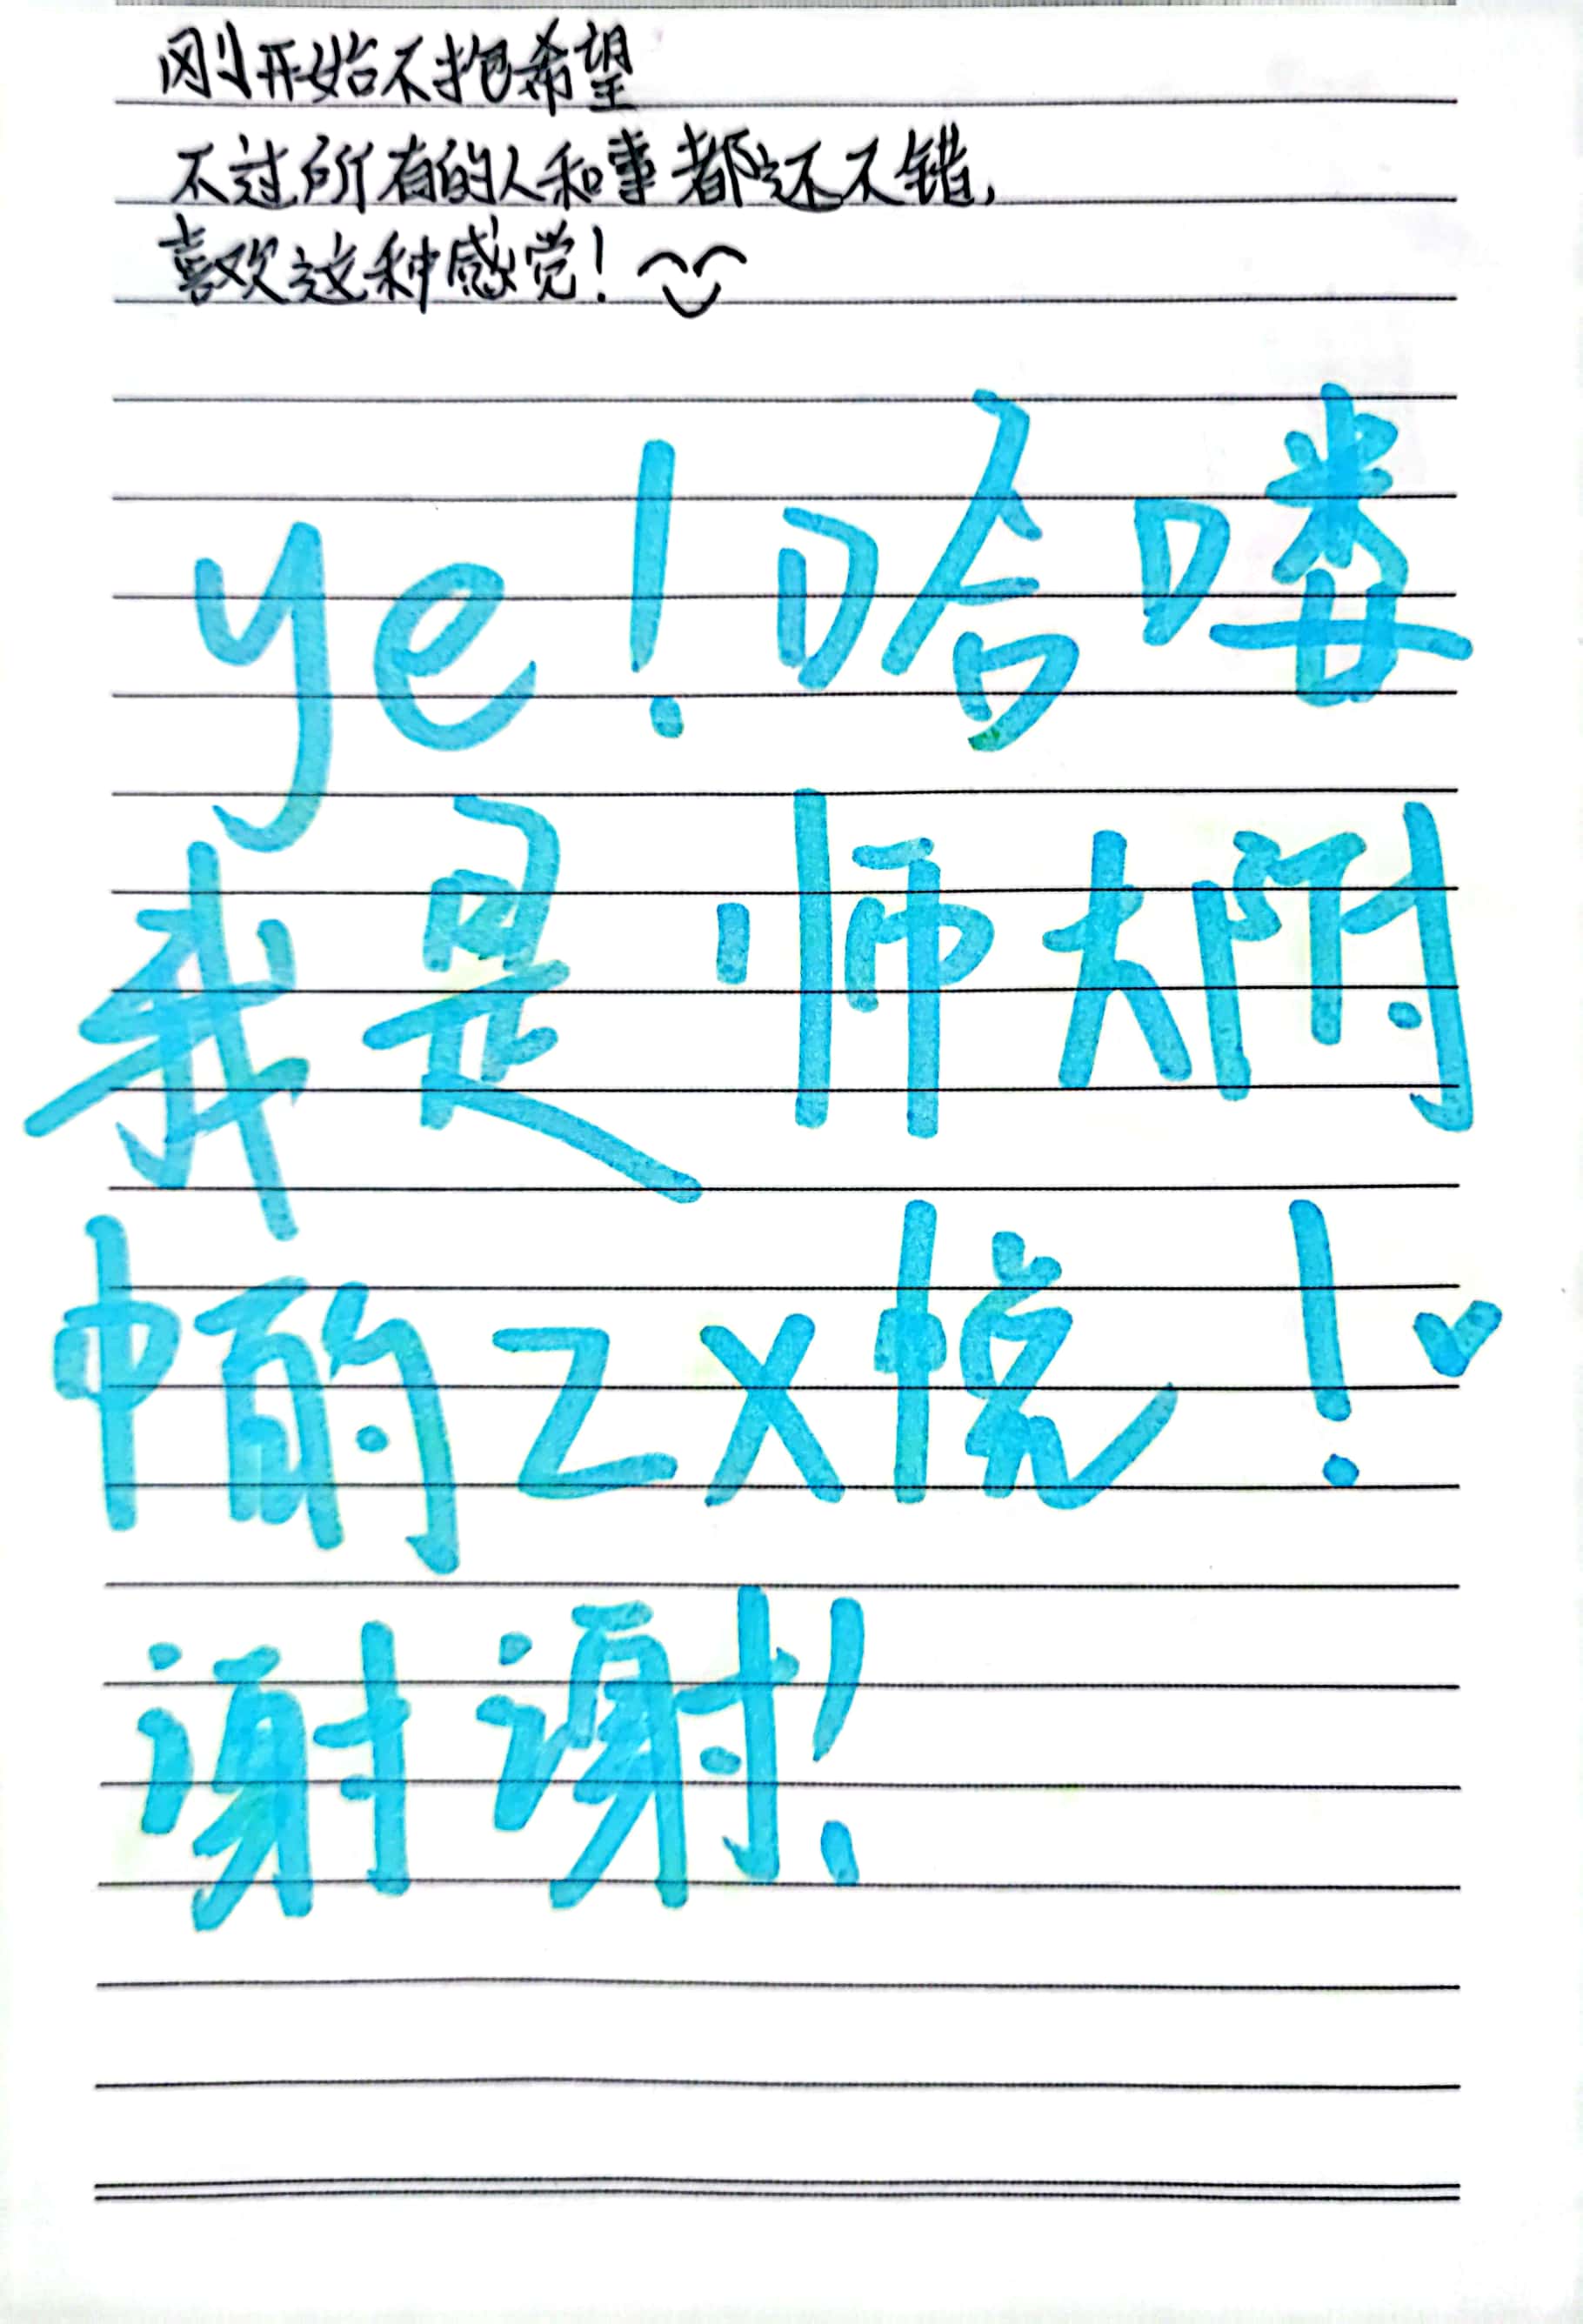 刚开始不抱希望
不过所有的人和事都还不错,
喜欢这种感觉!
ye!哈喽
我是师大附
中的ZX悦!
谢谢!